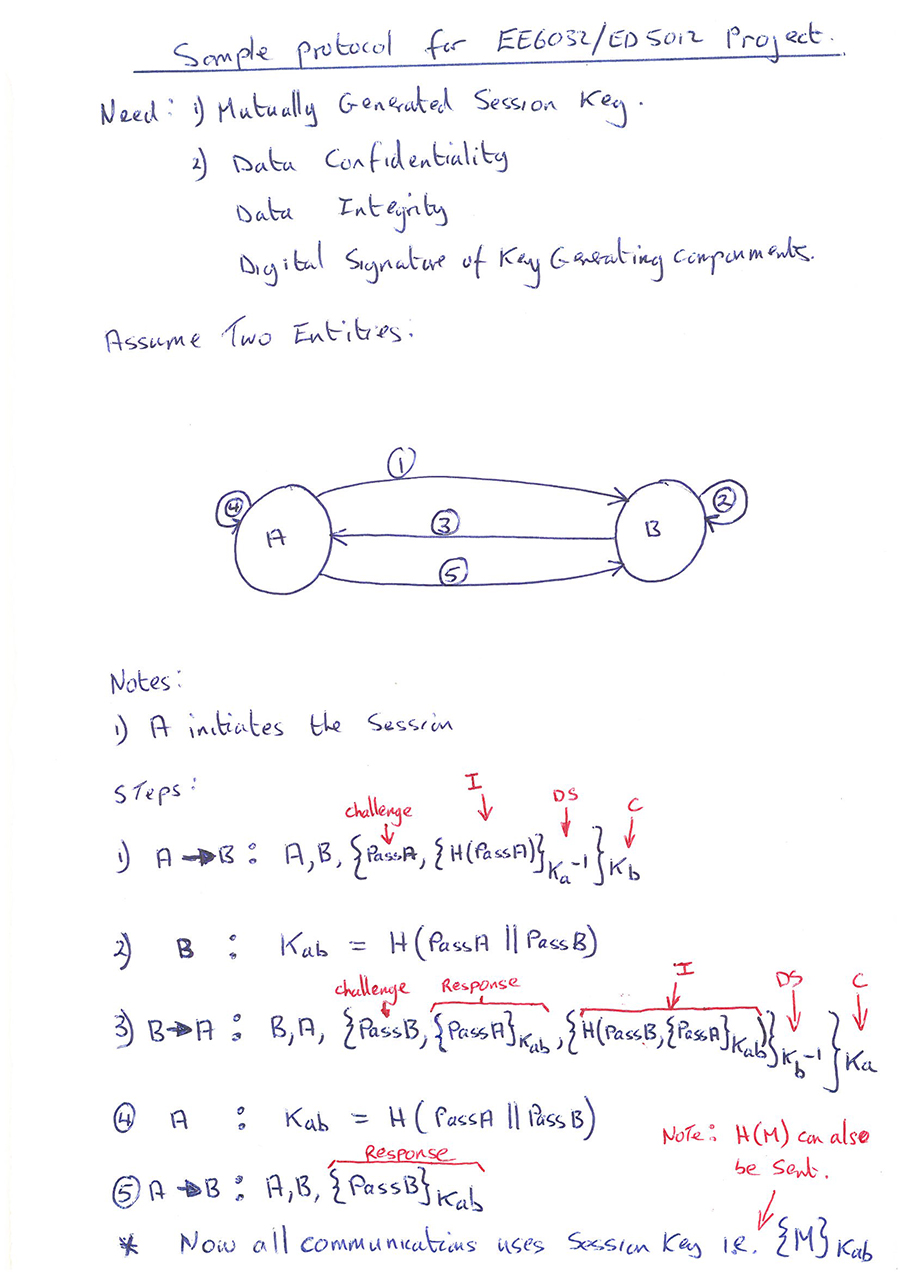 Sample protocol for EE6032/ED5012 Project.
Need: 1) Mutually Generated Session Key.
2) Data Confidentiality
Data Integrity
Digital Signature of Key Generating componments.
Assume Two Entities:
①
④ A ③ B ②
⑤
Notes:
1) A initiates the Session
Steps:
challenge I DS C
1) A → B : A, B, {PassA, {H(PassA)}Ka⁻¹}Kb
2) B : Kab = H(PassA || PassB)
challenge Response I DS C
3) B → A : B, A, {PassB, {PassA}Kab, {H(PassB, {PassA}Kab)}Kb⁻¹}Ka
④ A : Kab = H(PassA || PassB)
Note: H(M) can also
be sent.
Response
⑤ A → B : A, B, {PassB}Kab
* Now all communications uses Session Key i.e. {M}Kab